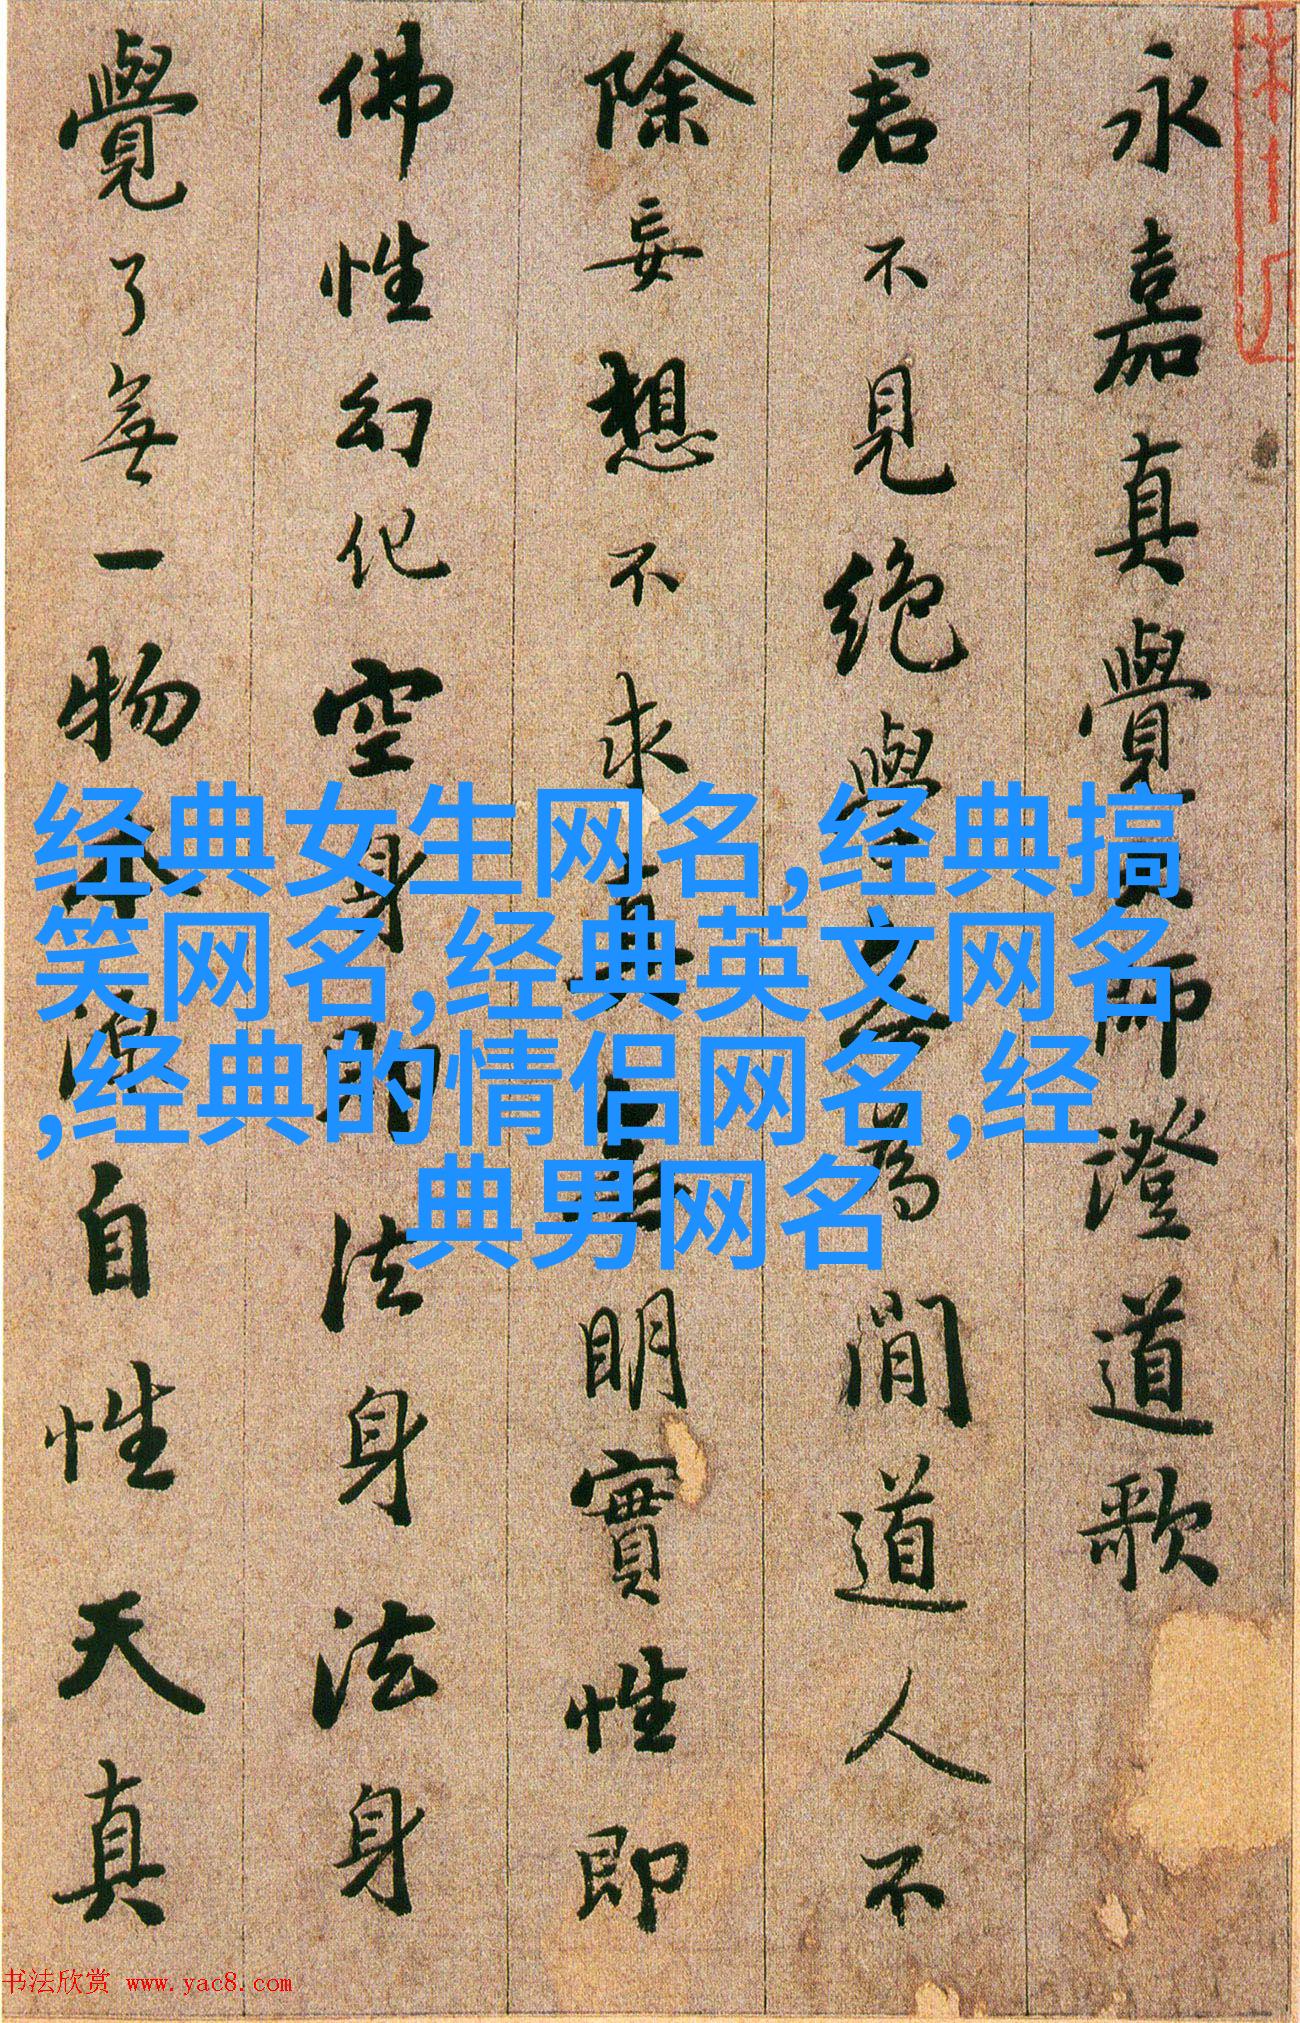 永嘉真覺師澄道歌
君不見絕學為閒道人不
除妄想不求真明實性即
佛性幻化空身即法身法身
覺了無一物本源自性天真
经典女生网名,经典搞
笑网名,经典英文网名
,经典的情侣网名,经
典男网名
书法欣赏 www.yac8.com